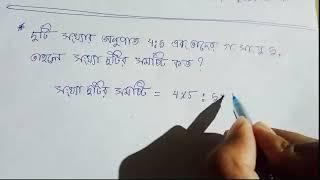 * দুটি সংখ্যার অনুপাত 4:5 এবং তাদের গ সা গু 5,
তাহলে সংখ্যা দুটির সমষ্টি কত ?
সংখ্যা দুটির সমষ্টি = 4x5 : 5